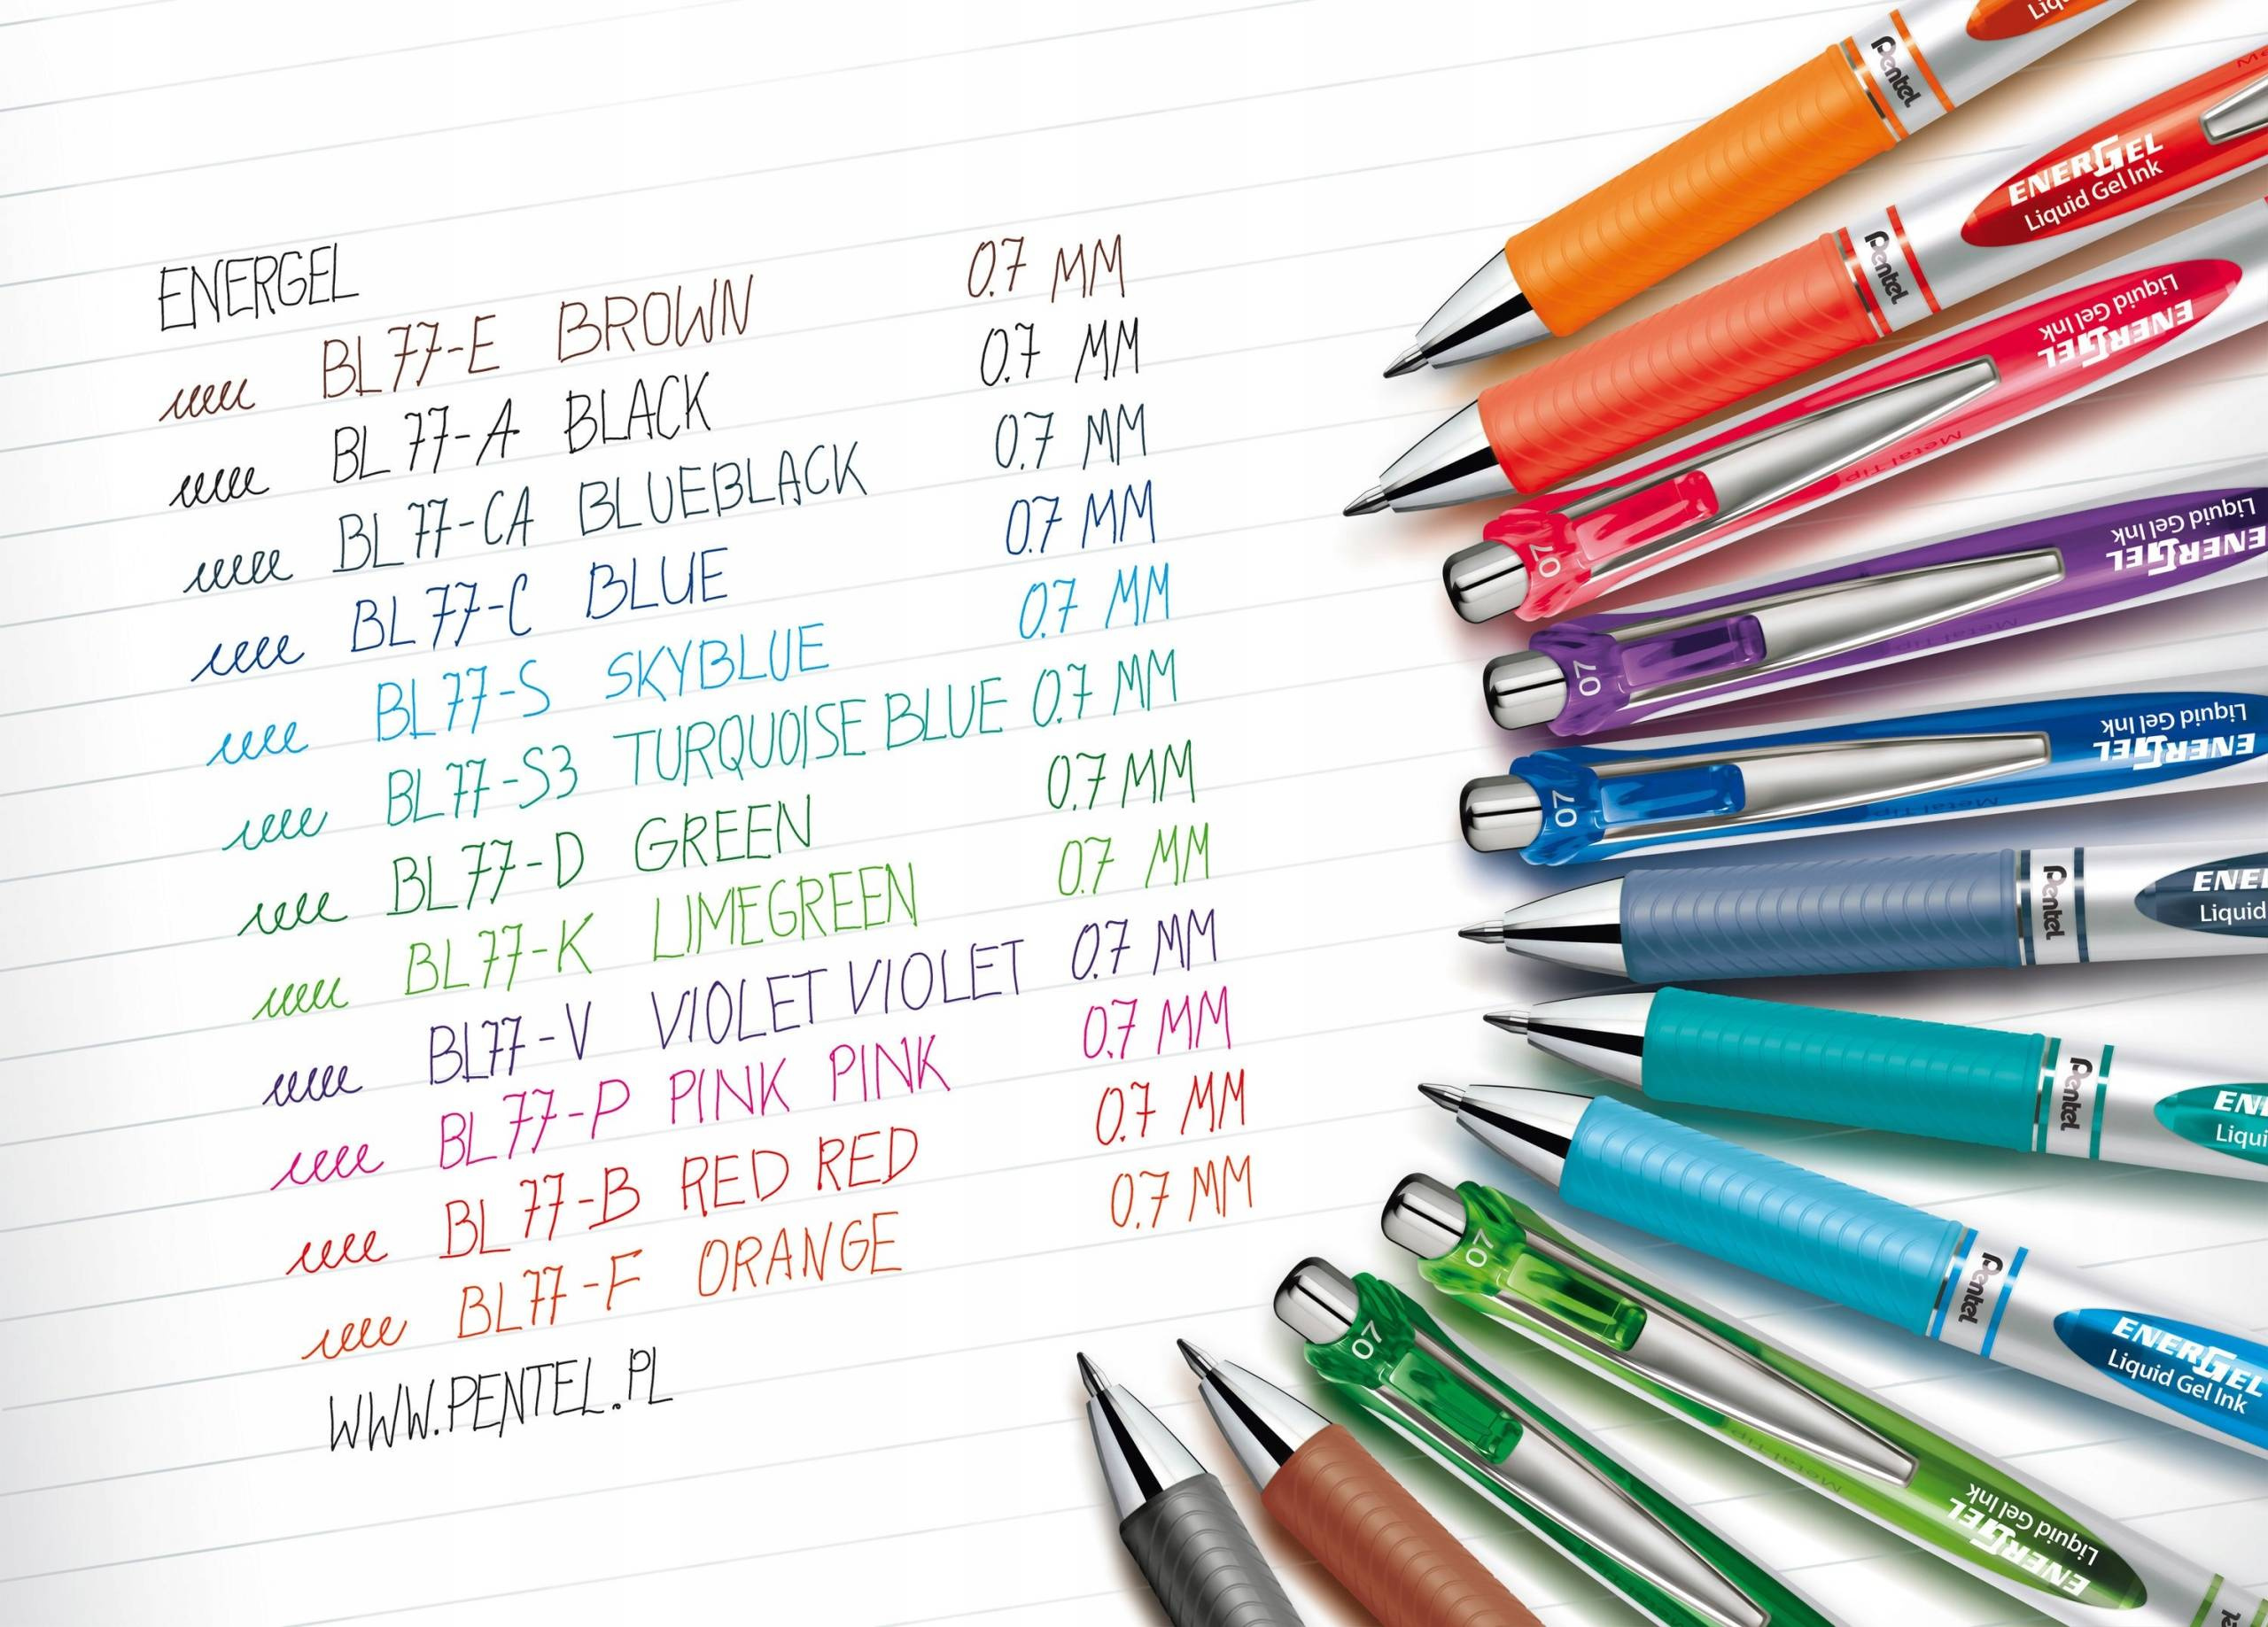 ENERGEL
BL77-E BROWN 0.7 MM
BL77-A BLACK 0.7 MM
BL77-CA BLUEBLACK 0.7 MM
BL77-C BLUE 0.7 MM
BL77-S SKYBLUE 0.7 MM
BL77-S3 TURQUOISE BLUE 0.7 MM
BL77-D GREEN 0.7 MM
BL77-K LIMEGREEN 0.7 MM
BL77-V VIOLET VIOLET 0.7 MM
BL77-P PINK PINK 0.7 MM
BL77-B RED RED 0.7 MM
BL77-F ORANGE 0.7 MM
WWW.PENTEL.PL
Pentel
Liq
Pentel
ENERGEL
Liquid Gel Ink
07
Metal Tip
ENERGEL
Liquid Gel Ink
07
Metal Tip
ENERGEL
Liquid Gel Ink
07
Metal Tip
ENERGEL
Liquid Gel Ink
Pentel
ENE
Liquid
Pentel
EN
Liqui
Pentel
ENERGEL
Liquid Gel Ink
07
Metal Tip
ENERGEL
Liquid Gel Ink
07